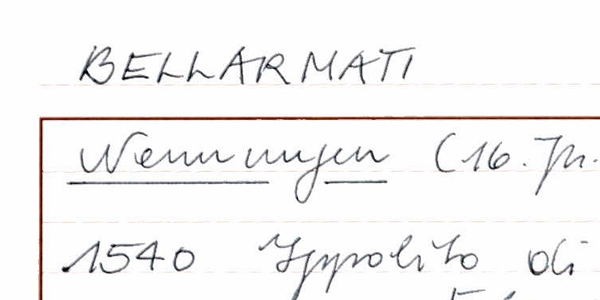 BELLARMATI
Nennungen (16. Jh.
1540 Ippolito di